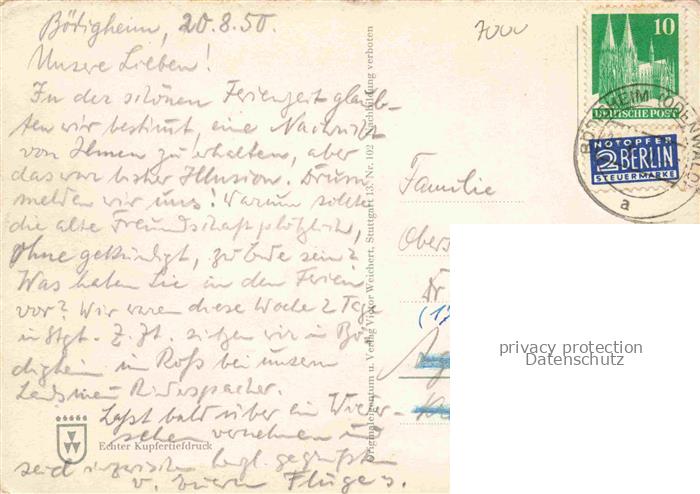 Bödigheim, 20.8.50.
Unsere Lieben!
In der schönen Ferienzeit glaub-
ten wir bestimt, eine Nachricht
von Ihnen zu erhalten, aber
das war bisher Illusion. Drum
melden wir uns! Warum sollte
die alte Freundschaft plötzlich,
ohne gekündigt, zu Ende sein?
Was haben Sie in den Ferien
vor? Wir waren diese Woche 2 Tage
in Stgt. Z. Zt. sitzen wir in Bö-
digheim im Roß bei unserm
Landsmann
Laßt bald über ein Wieder-
sehen vernehmen und
seid inzwischen herzl. gegrüßt
v. Euern Flüge s.
Echter Kupfertiefdruck
Originaleigentum u. Verlag Victor Weichert, Stuttgart 13, Nr. 102 Nachbildung verboten
7000
10
DEUTSCHE POST
NOTOPFER
2 BERLIN
STEUERMARKE
BÖDIGHEIM (ODENWALD)
a
Familie
Obers
Dr
(17
privacy protection
Datenschutz